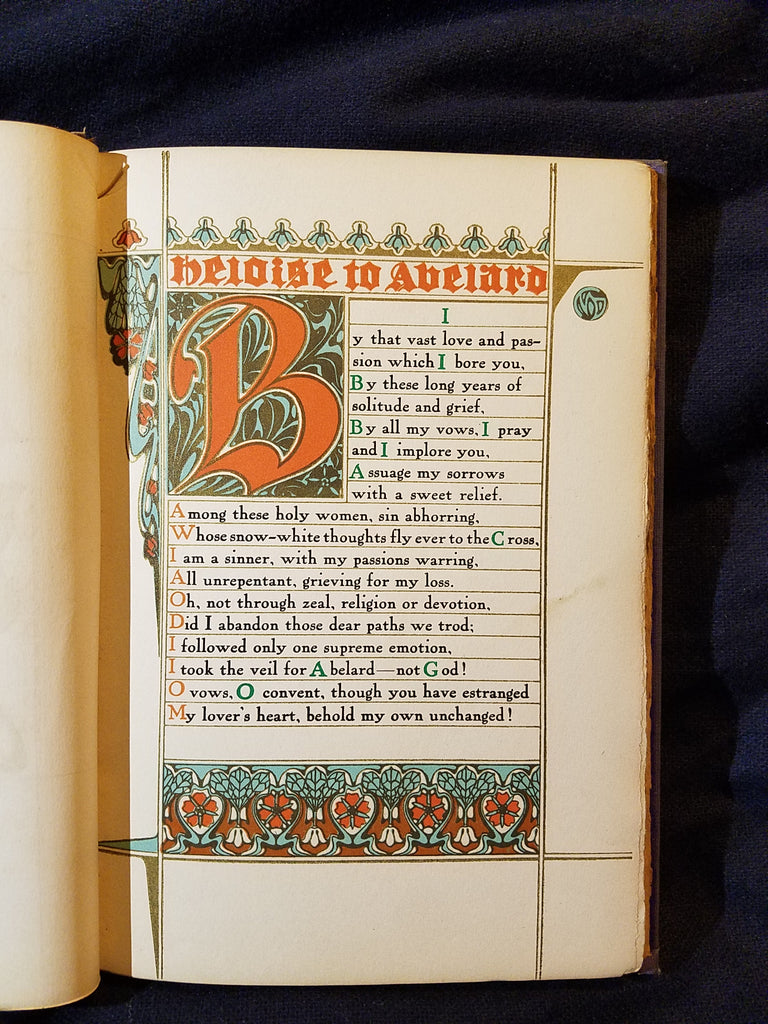 Heloise to Abelard
I
By that vast love and pas-
sion which I bore you,
By these long years of
solitude and grief,
By all my vows, I pray
and I implore you,
Assuage my sorrows
with a sweet relief.
Among these holy women, sin abhorring,
Whose snow-white thoughts fly ever to the Cross,
I am a sinner, with my passions warring,
All unrepentant, grieving for my loss.
Oh, not through zeal, religion or devotion,
Did I abandon those dear paths we trod;
I followed only one supreme emotion,
I took the veil for Abelard—not God!
O vows, O convent, though you have estranged
My lover's heart, behold my own unchanged!